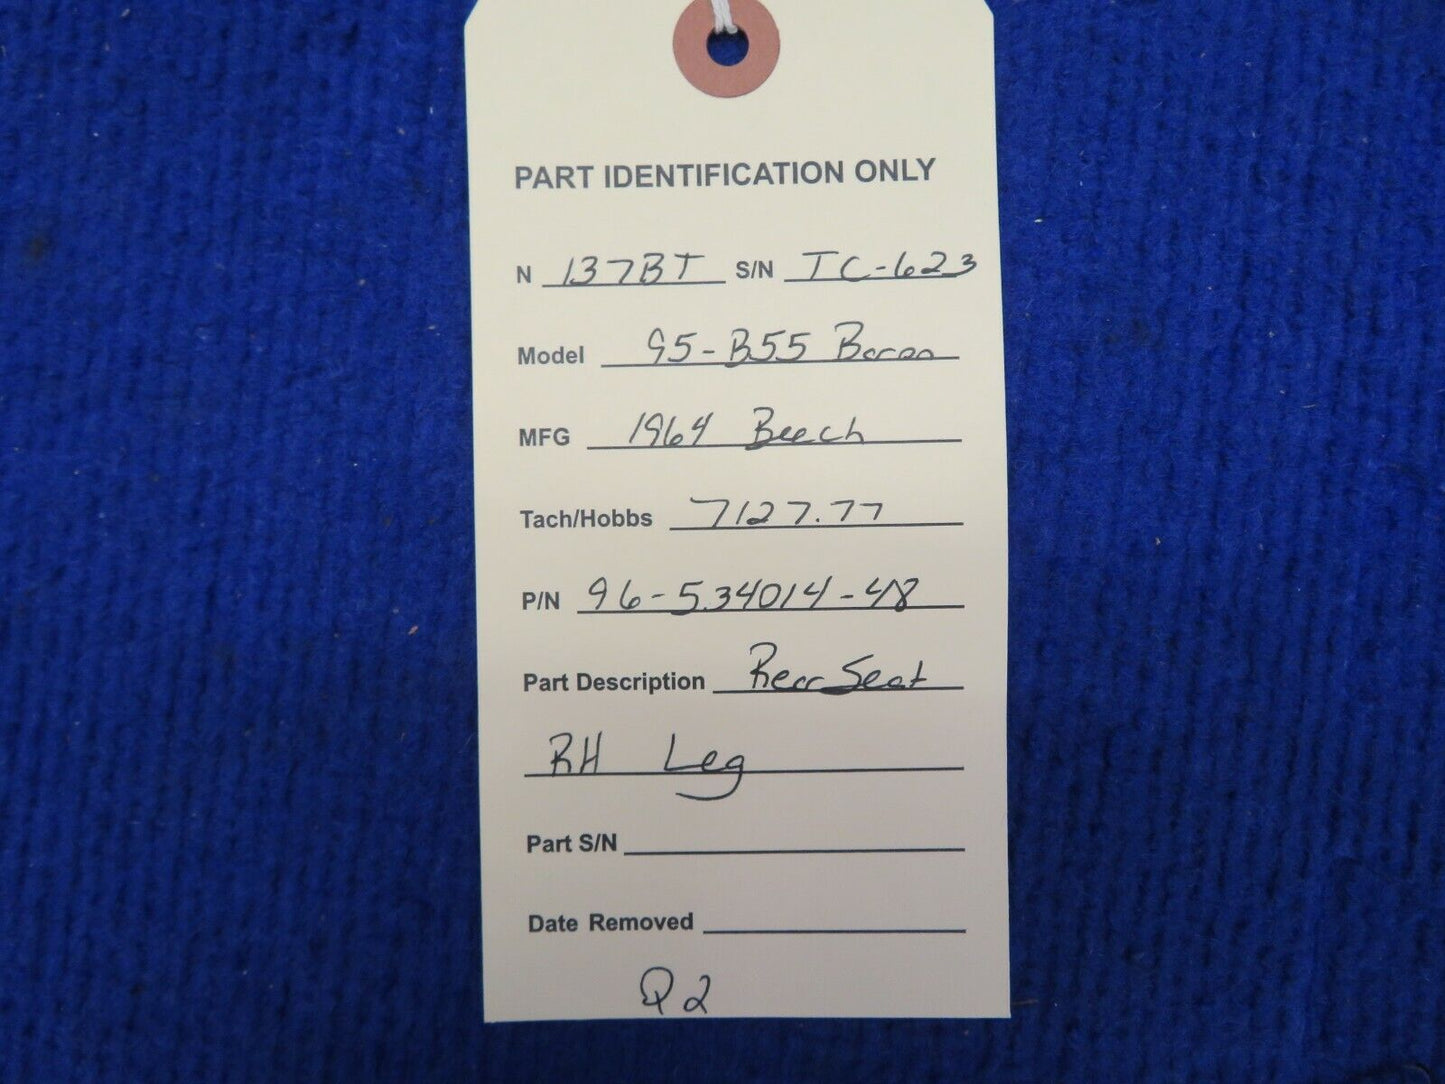 PART IDENTIFICATION ONLY
N 137BT S/N TC-623
Model 95-B55 Baron
MFG 1964 Beech
Tach/Hobbs 7127.77
P/N 96-534014-48
Part Description Rear Seat
RH Leg
Part S/N
Date Removed
Q2